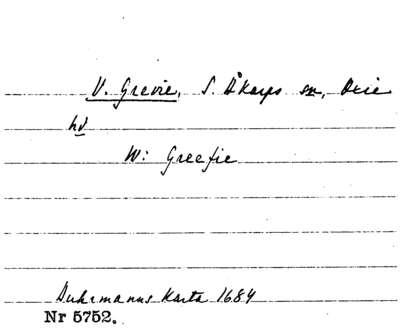 V. Grevie, S. Åkarps sn, Oxie
hd
W: Greefie
Buhrmanns Karta 1684
Nr 5752.